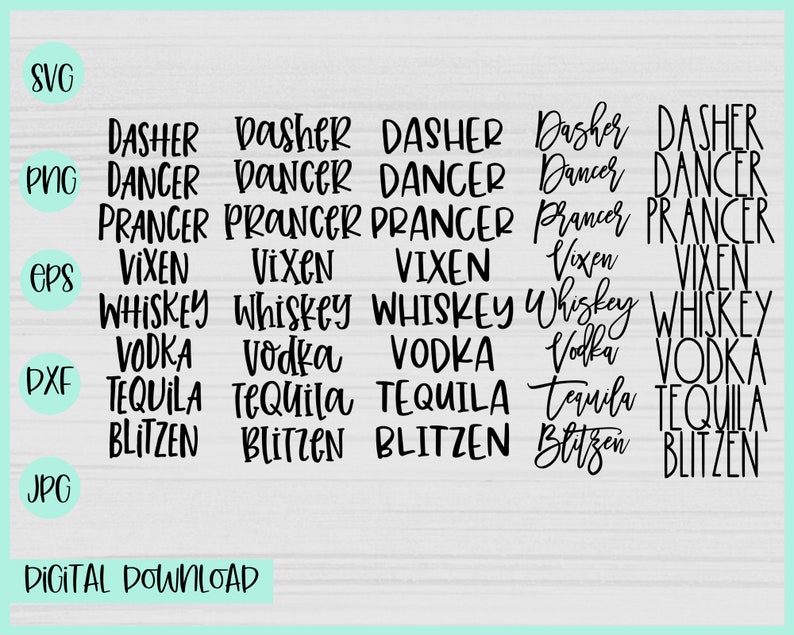 SVG
PNG
EPS
DXF
JPG
DASHER
DANCER
PRANCER
ViXEN
WHiSKEY
VODKA
TEQUiLA
BLiTZEN
DasheR
DaNCER
PRaNCER
ViXeN
Whiskey
Vodka
TeQUila
BLiTZeN
DASHER
DANCER
PRANCER
VIXEN
WHISKEY
VODKA
TEQUILA
BLITZEN
Dasher
Dancer
Prancer
Vixen
Whiskey
Vodka
Tequila
Blitzen
DASHER
DANCER
PRANCER
VIXEN
WHISKEY
VODKA
TEQUILA
BLITZEN
DiGiTAL DOWNLOAD